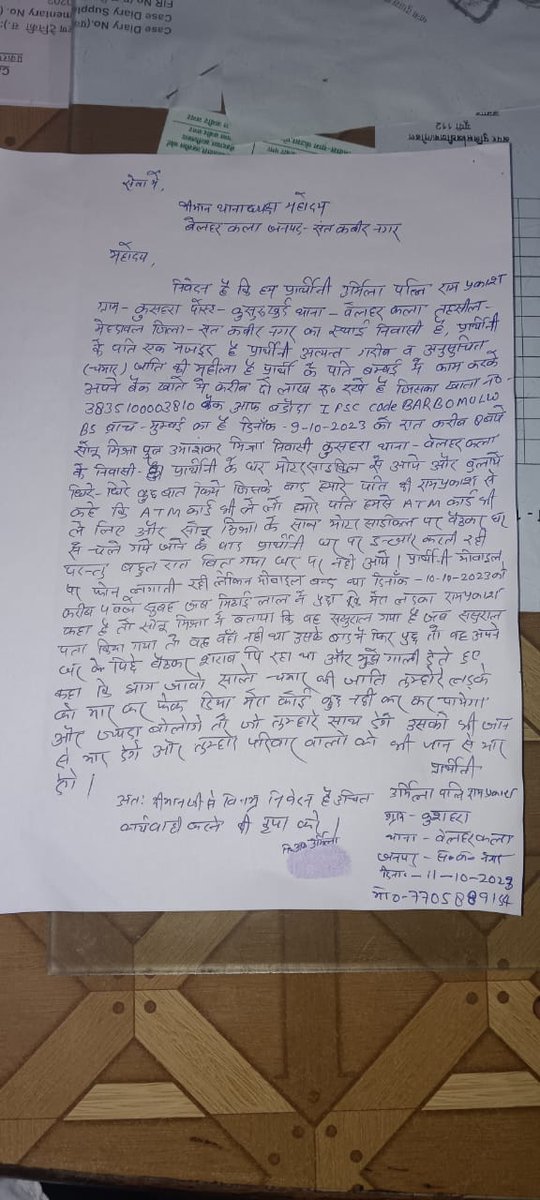 Case Diary No.
सेवा में,
श्रीमान थानाध्यक्ष महोदय
बेलहर कला जनपद - संत कबीर नगर
महोदय,
निवेदन है कि हम प्रार्थीनी उर्मिला पत्नि राम प्रकाश
ग्राम - कुसहरा पोस्ट - थाना - बेलहर कला तहसील-
मेहदावल जिला - संत कबीर नगर का स्थाई निवासी है, प्रार्थीनी
के पति एक मजदूर है प्रार्थीनी अत्यन्त गरीब व अनुसुचित
(चमार) जाति की महीला है प्रार्थी के पति बम्बई में काम करके
अपने बैंक खाते में करीब दो लाख रू० रखे है जिसका खाता नं०-
3835100003810 बैंक आफ बड़ौदा IFSC code BARBOMULW
BS ब्रांच - मुम्बई का है दिनाँक - 9-10-2023 को रात करीब 8 बजे
सोनू मिश्रा पुत्र उमाशंकर मिश्रा निवासी कुसहरा थाना - बेलहर कला
के निवासी प्रार्थीनी के घर मोटरसाइकिल से आये और बुलाये
धिरे-धिरे कुछ बात किये जिसके बाद हमारे पति श्री रामप्रकाश से
कहे कि ATM कार्ड भी ले लो हमारे पति हमसे ATM कार्ड भी
ले लिए और सोनू मिश्रा के साथ मोटर साइकिल पर बैठकर घर
से चले गये जाने के बाद प्रार्थीनी घर पर इन्तजार करती रही
परन्तु बहुत रात बित गया घर पर नही आये। प्रार्थीनी मोबाइल
पर फोन लगाती रही लेकिन मोबाइल बन्द था दिनाँक -10-10-2023 को
करीब सुबह जब मिठाई लाल ने पुछा कि मेरा लड़का रामप्रकाश
कहा है तो सोनू मिश्रा ने बताया कि वह ससुराल गया है जब ससुराल
पता किया गया तो वह वहाँ नही था उसके बाद में फिर पुछे तो वह अपने
घर के पिछे बैठकर शराब पि रहा था और मुझे गाली देते हुए
कहा कि भाग जावो साले चमार की जाति तुम्हारे लड़के
को मार कर फेक दिया मेरा कोई कुछ नही कर कर पायेगा
और ज्यादा बोलोगे तो जो तुम्हारे साथ देगे उसको भी जान
से मार देगे और तुम्हारे परिवार वालो को भी जान से मार
देगे।
प्रार्थीनी
अतः श्रीमान जी से विनम्र निवेदन है उचित
कार्यवाही करने की कृपा करे।
उर्मिला पत्नि रामप्रकाश
ग्राम - कुशहरा
थाना - बेलहर कला
जनपद - सं० क० नगर
दिनाँ० - 11-10-2023
मो०-7705889154
उर्मिला